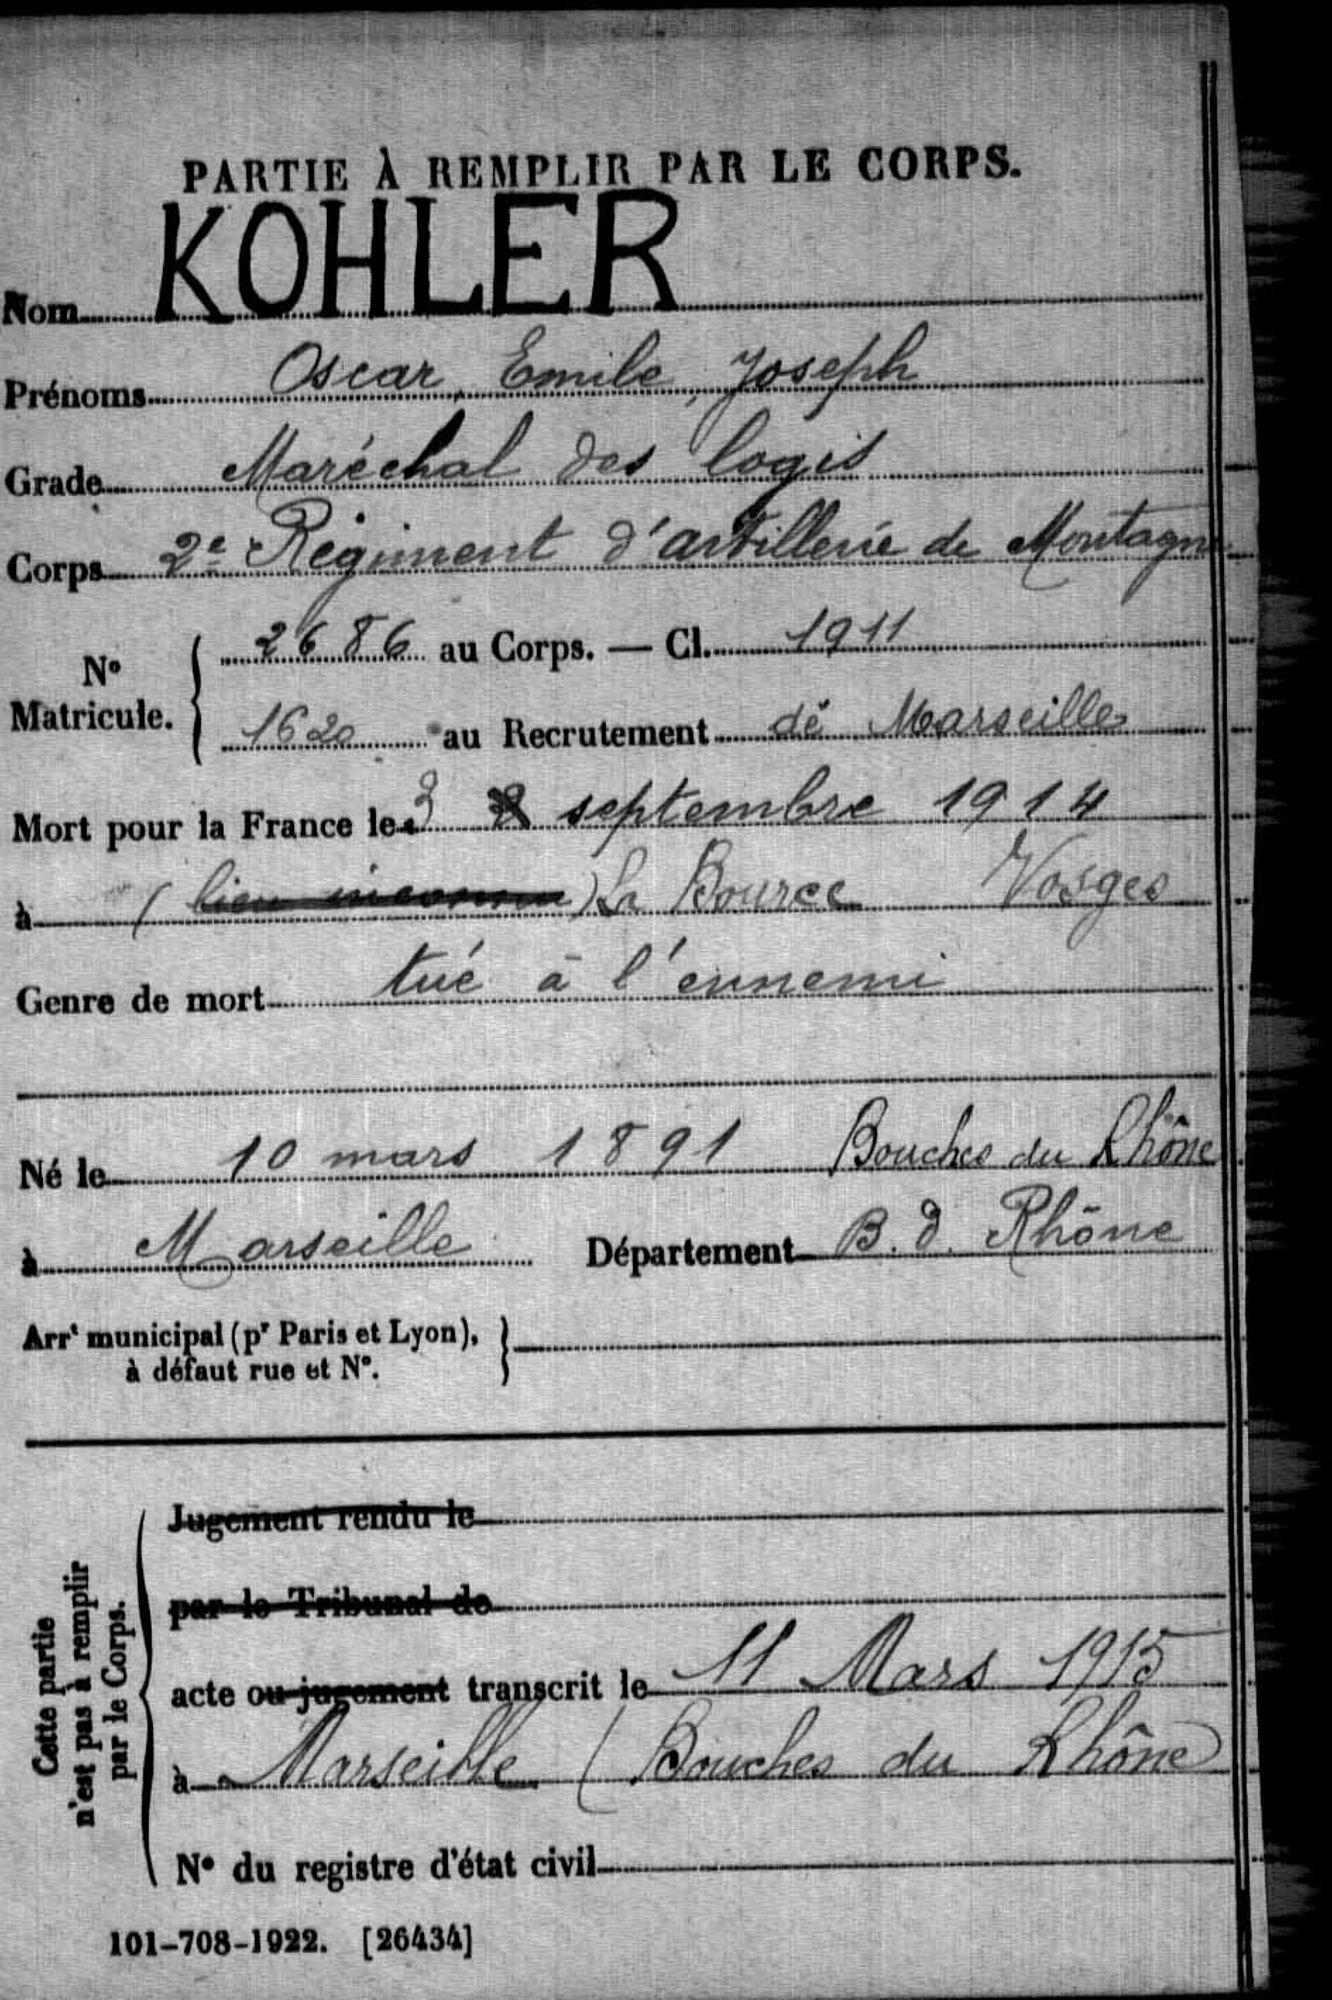 PARTIE À REMPLIR PAR LE CORPS.
Nom KOHLER
Prénoms Oscar, Emile, Joseph
Grade Maréchal des logis
Corps 2e Régiment d'artillerie de Montagne
N° Matricule. { 2686 au Corps. — Cl. 1911
1620 au Recrutement de Marseille
Mort pour la France le 3 septembre 1914
à (lieu inconnu) La Bource Vosges
Genre de mort tué à l'ennemi
Né le 10 mars 1891 Bouches du Rhône
à Marseille Département B. d. Rhône
Arrt municipal (pr Paris et Lyon), }
à défaut rue et N°.
Cette partie n'est pas à remplir par le Corps.
Jugement rendu le
par le Tribunal de
acte ou jugement transcrit le 11 Mars 1915
à Marseille (Bouches du Rhône)
N° du registre d'état civil
101-708-1922. [26434]